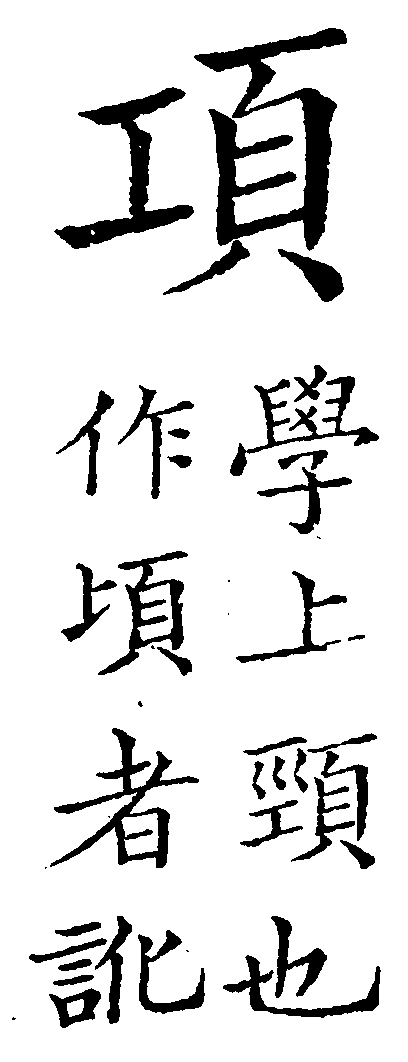 項
學上頸也
作頃者訛